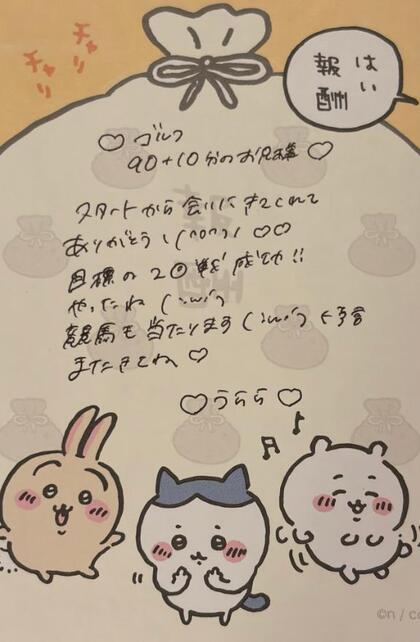 はい
報酬
チャリ
チャリ
♡ ゴルフ
90+10分のお兄様 ♡
スタートから会いにきてくれて
ありがとう \(^o^)/ ♡♡
目標の20戦成功!!
やったね (:ω:)
競馬も当たります (:ω:) 予言
またきてね ♡
♡ うらら ♡
©n / c